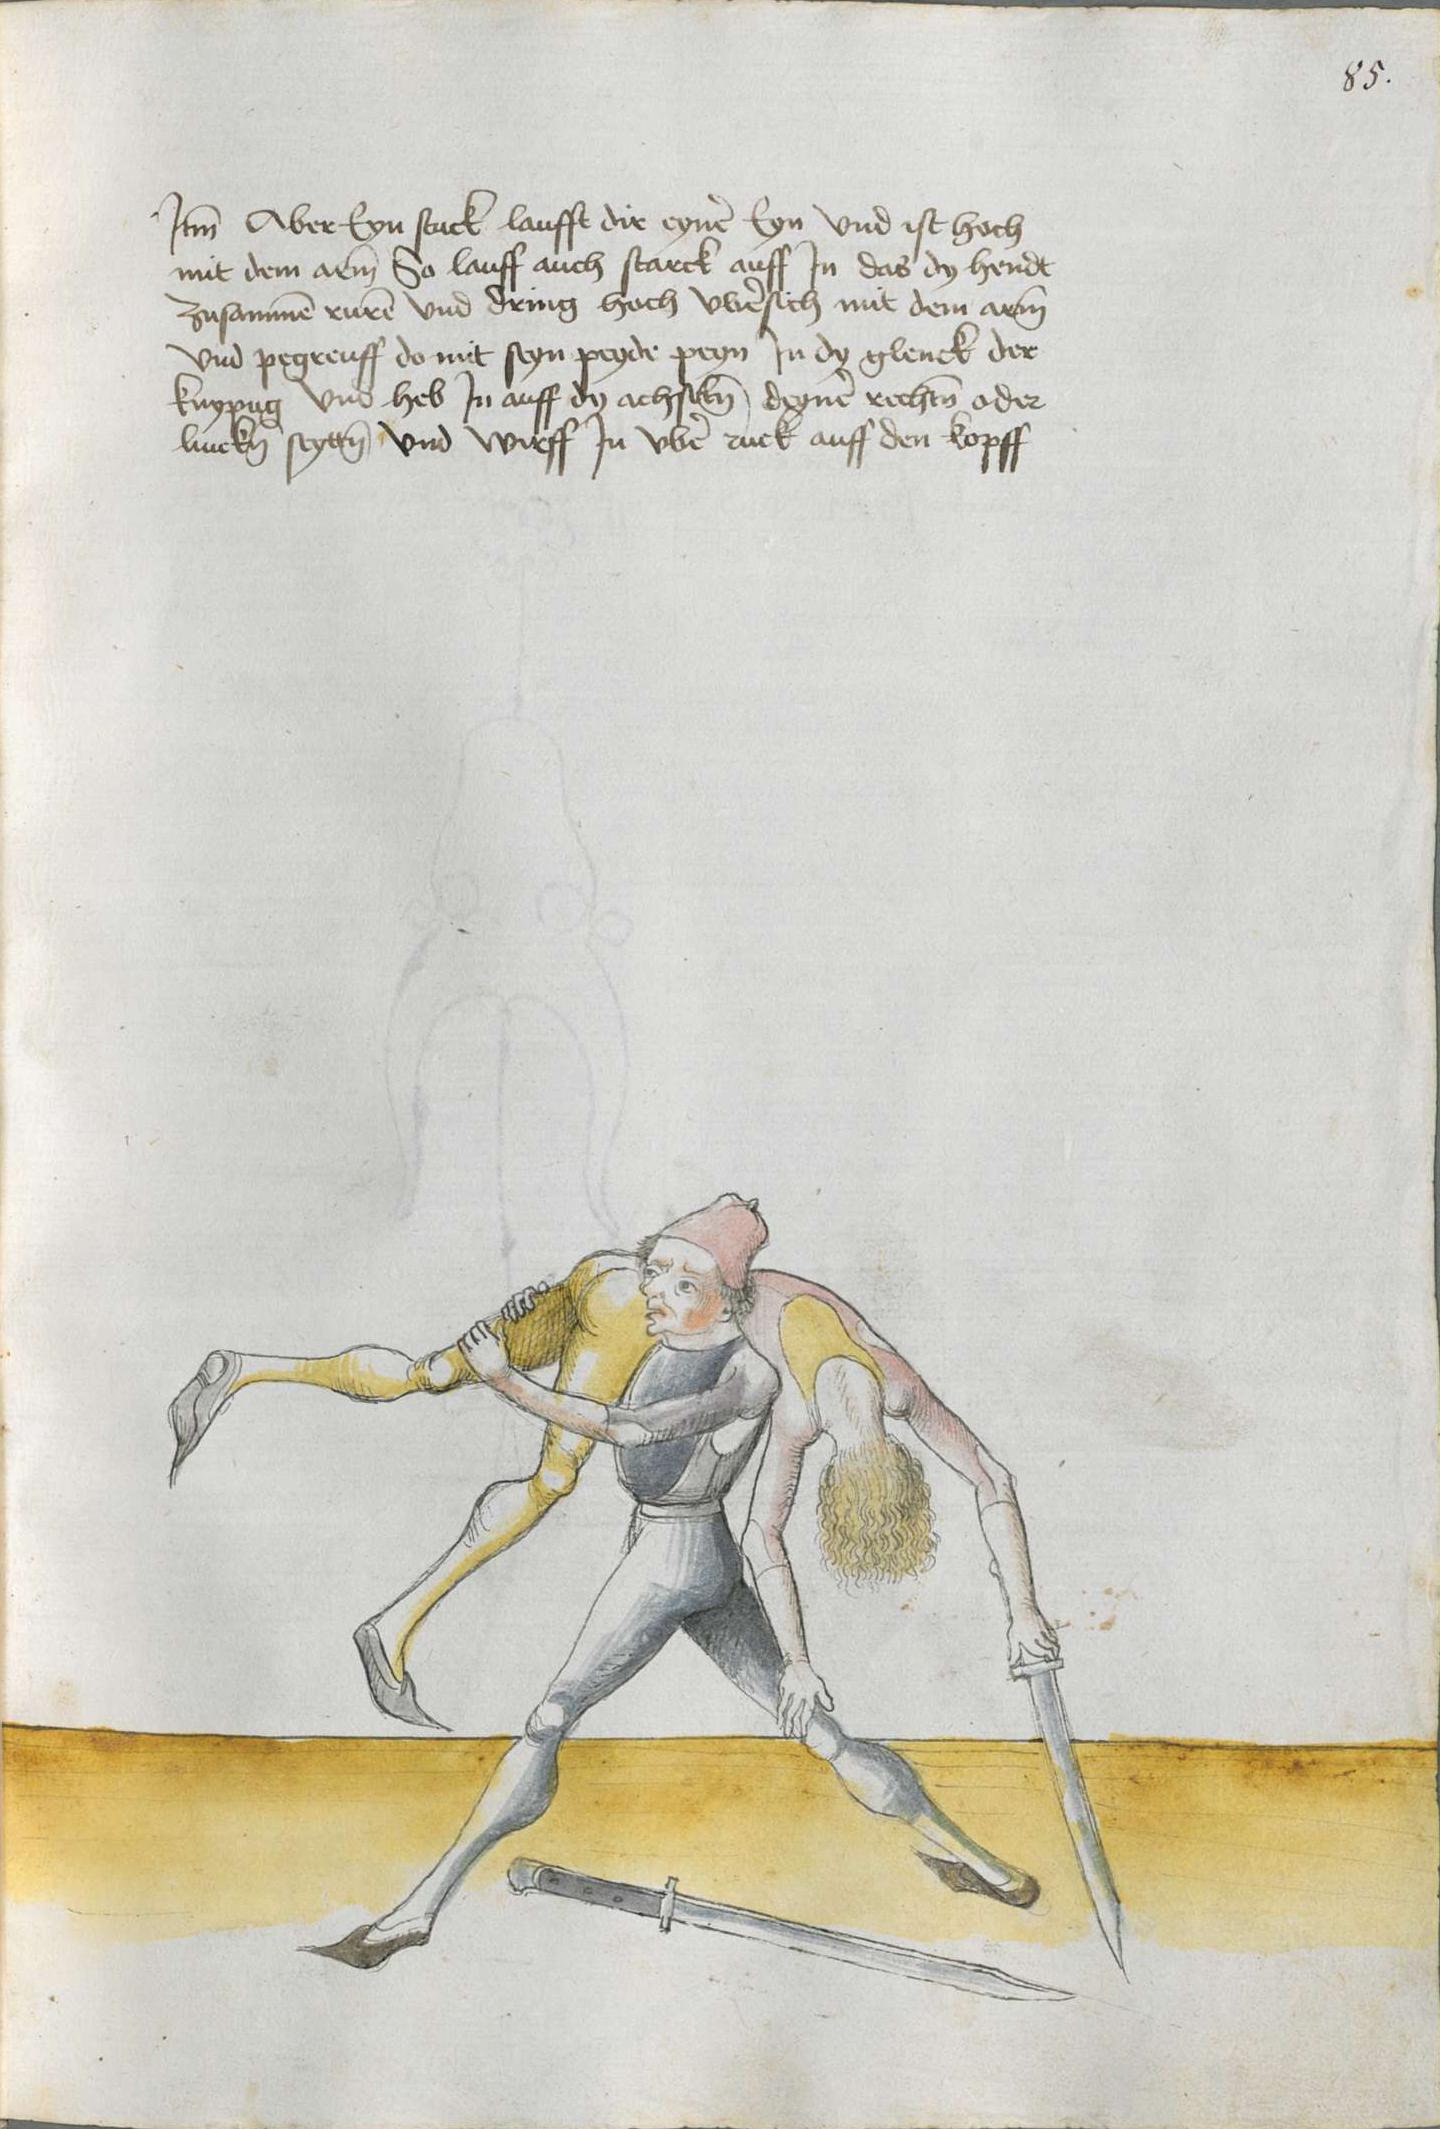 85.
Itm̄ Aber Eyn stuck laufft dir eyner̄ Eyn Vnd ist hoch
mit dem arm̄ So lauff auch starck auff In das dy hendt
zusammē rurē Vnd dring hoch vber̄sich mit dem arm̄
Vnd pegreuff do mit seyn peyde peyn In dy glenck der
knypug Vnd heb In auff dy achselln̄ deyner̄ rechtn̄ oder
linckn̄ seyttn̄ Vnd wirff In vber̄ ruck auff den kopff